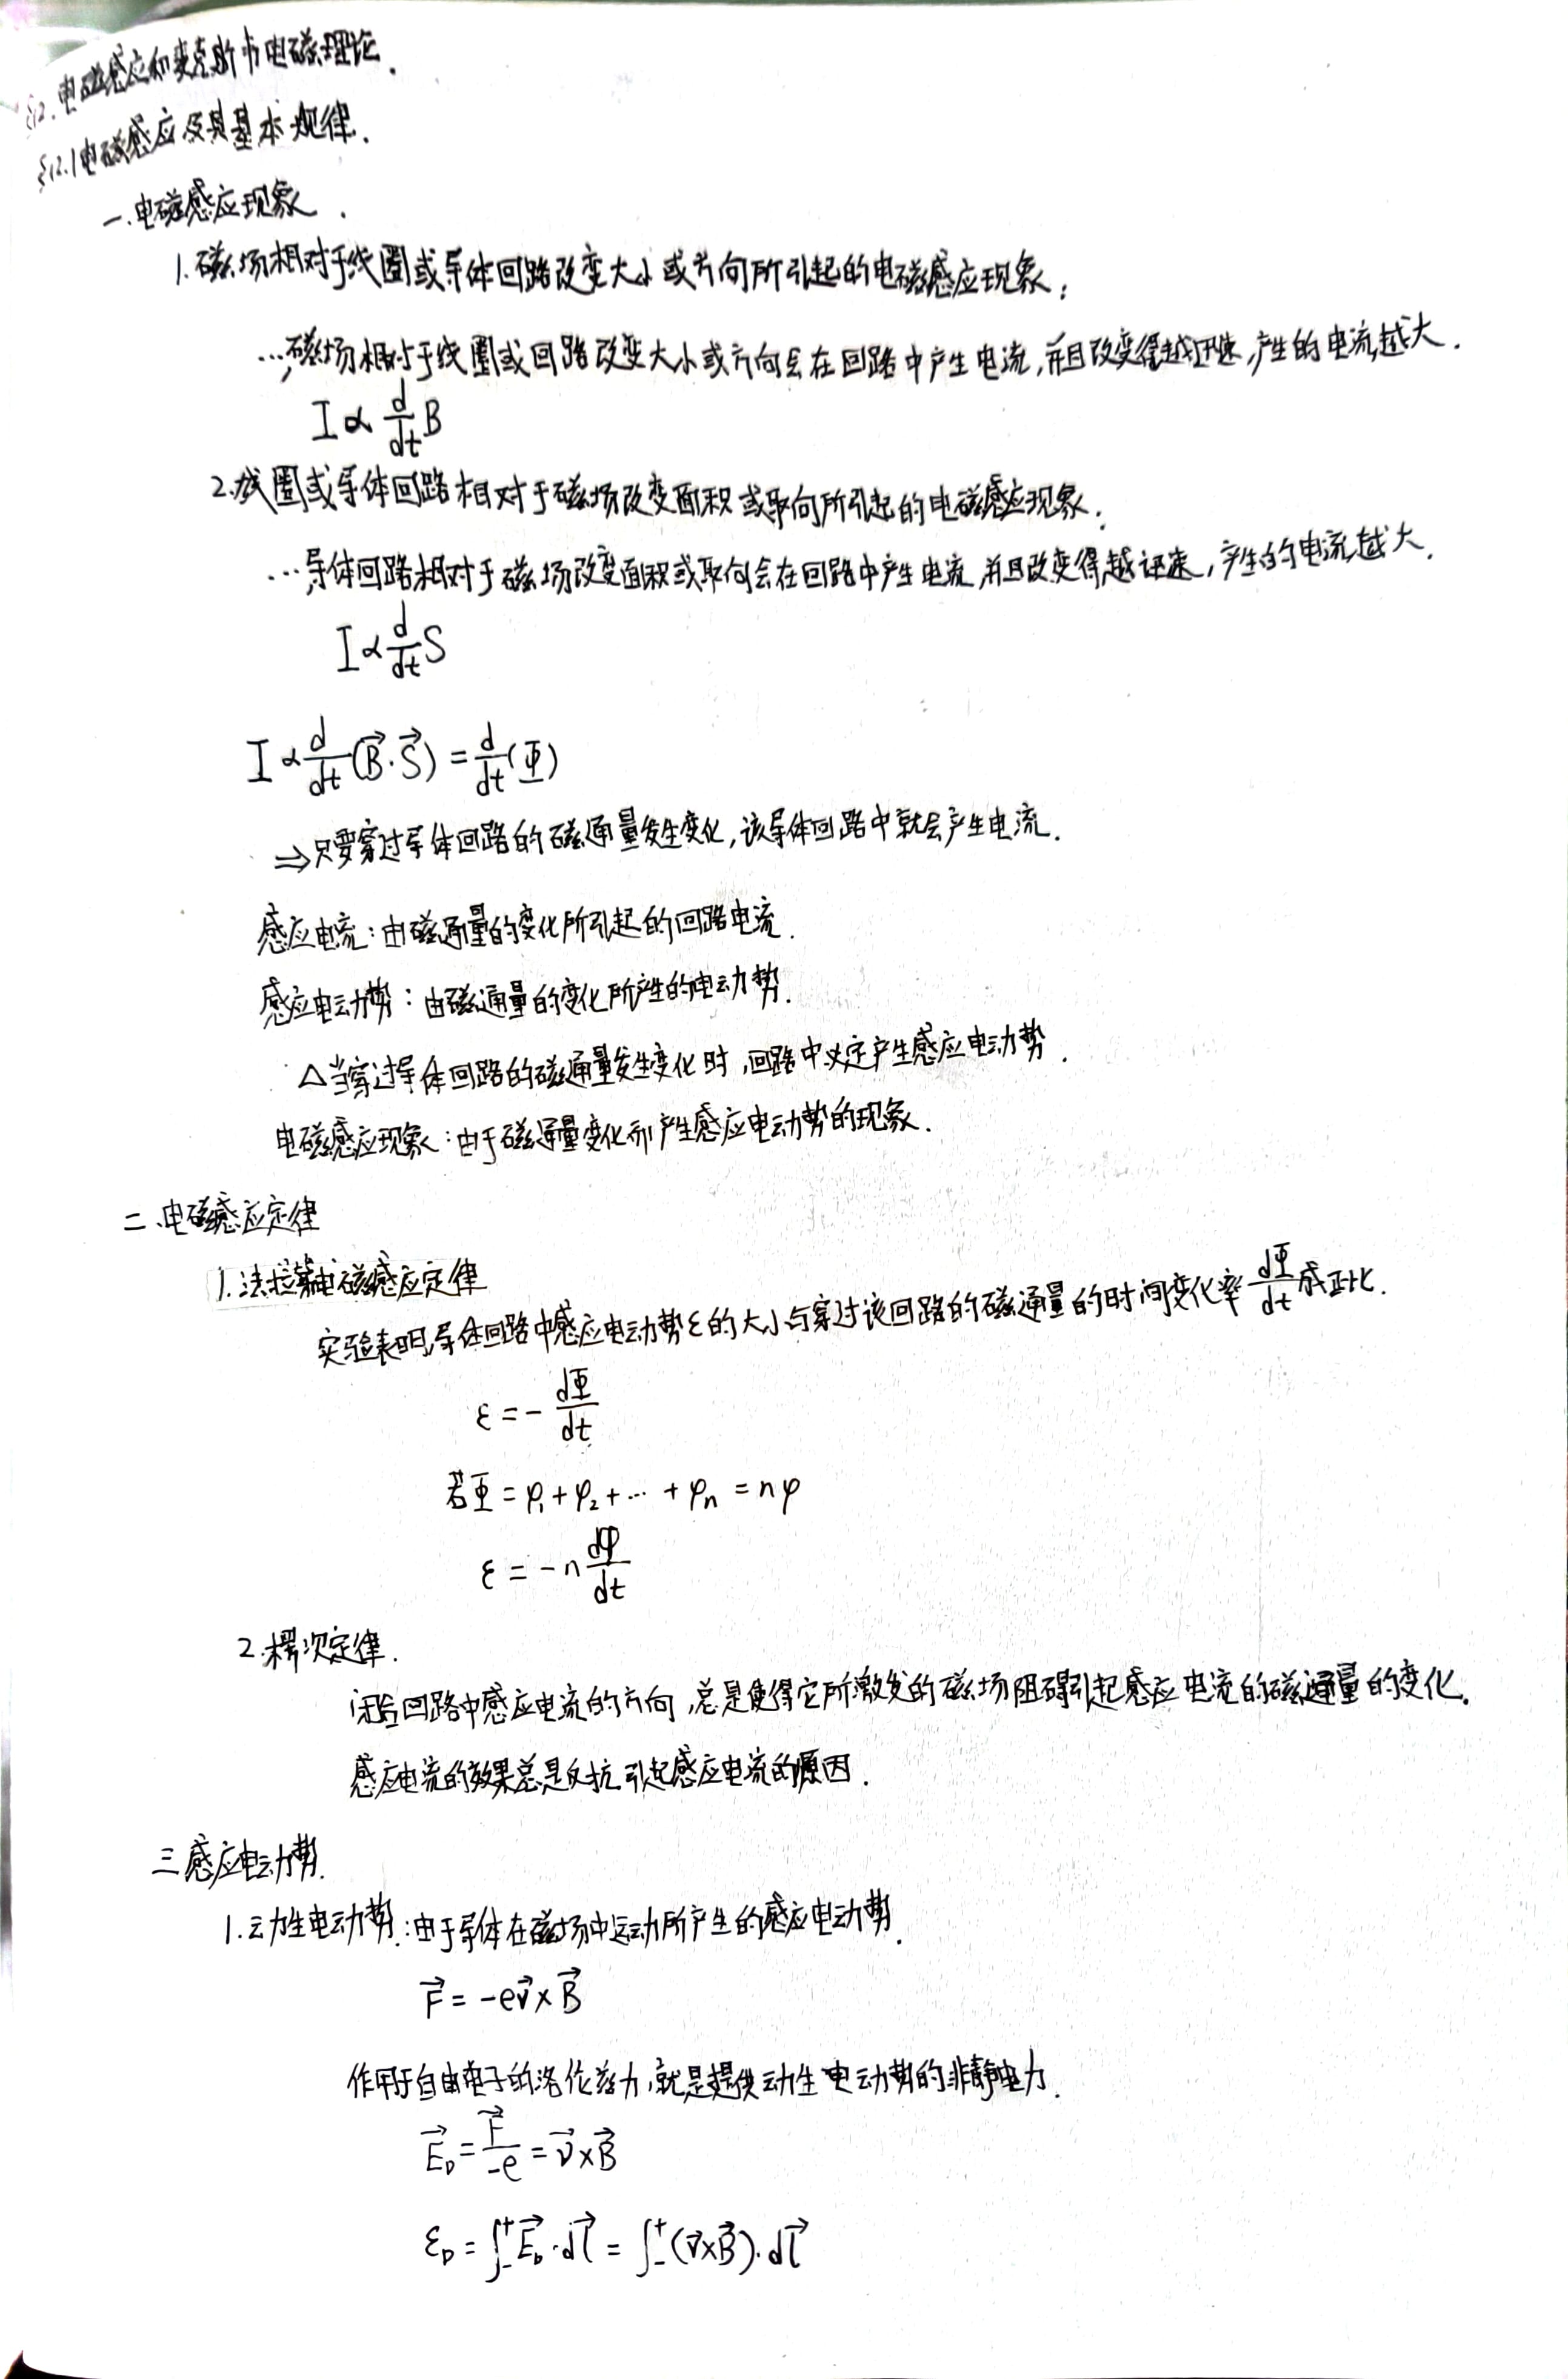 §12.电磁感应和麦克斯韦电磁理论.
§12.1电磁感应及其基本规律.
一.电磁感应现象.
1.磁场相对于线圈或导体回路改变大小或方向所引起的电磁感应现象:
…,磁场相对于线圈或回路改变大小或方向会在回路中产生电流,并且改变得越迅速,产生的电流越大.
I∝d/dt B
2.线圈或导体回路相对于磁场改变面积或取向所引起的电磁感应现象.
…,导体回路相对于磁场改变面积或取向会在回路中产生电流,并且改变得越迅速,产生的电流越大.
I∝d/dt S
I∝d/dt(B⃗·S⃗)=d/dt(Φ)
⇒只要穿过导体回路的磁通量发生变化,该导体回路中就会产生电流.
感应电流:由磁通量的变化所引起的回路电流.
感应电动势:由磁通量的变化所产生的电动势.
△当穿过导体回路的磁通量发生变化时,回路中必定产生感应电动势.
电磁感应现象:由于磁通量变化而产生感应电动势的现象.
二、电磁感应定律
1.法拉第电磁感应定律
实验表明,导体回路中感应电动势ε的大小与穿过该回路的磁通量的时间变化率dΦ/dt成正比.
ε=-dΦ/dt
若Φ=φ₁+φ₂+…+φₙ=nφ
ε=-n dφ/dt
2.楞次定律.
闭合回路中感应电流的方向,总是使得它所激发的磁场阻碍引起感应电流的磁通量的变化.
感应电流的效果总是反抗引起感应电流的原因.
三感应电动势.
1.动生电动势:由于导体在磁场中运动所产生的感应电动势.
F⃗=-ev⃗×B⃗
作用于自由电子的洛伦兹力,就是提供动生电动势的非静电力.
E⃗_D=F⃗/-e=v⃗×B⃗
ε_D=∫₋⁺E⃗_D·dl⃗=∫₋⁺(v⃗×B⃗)·dl⃗